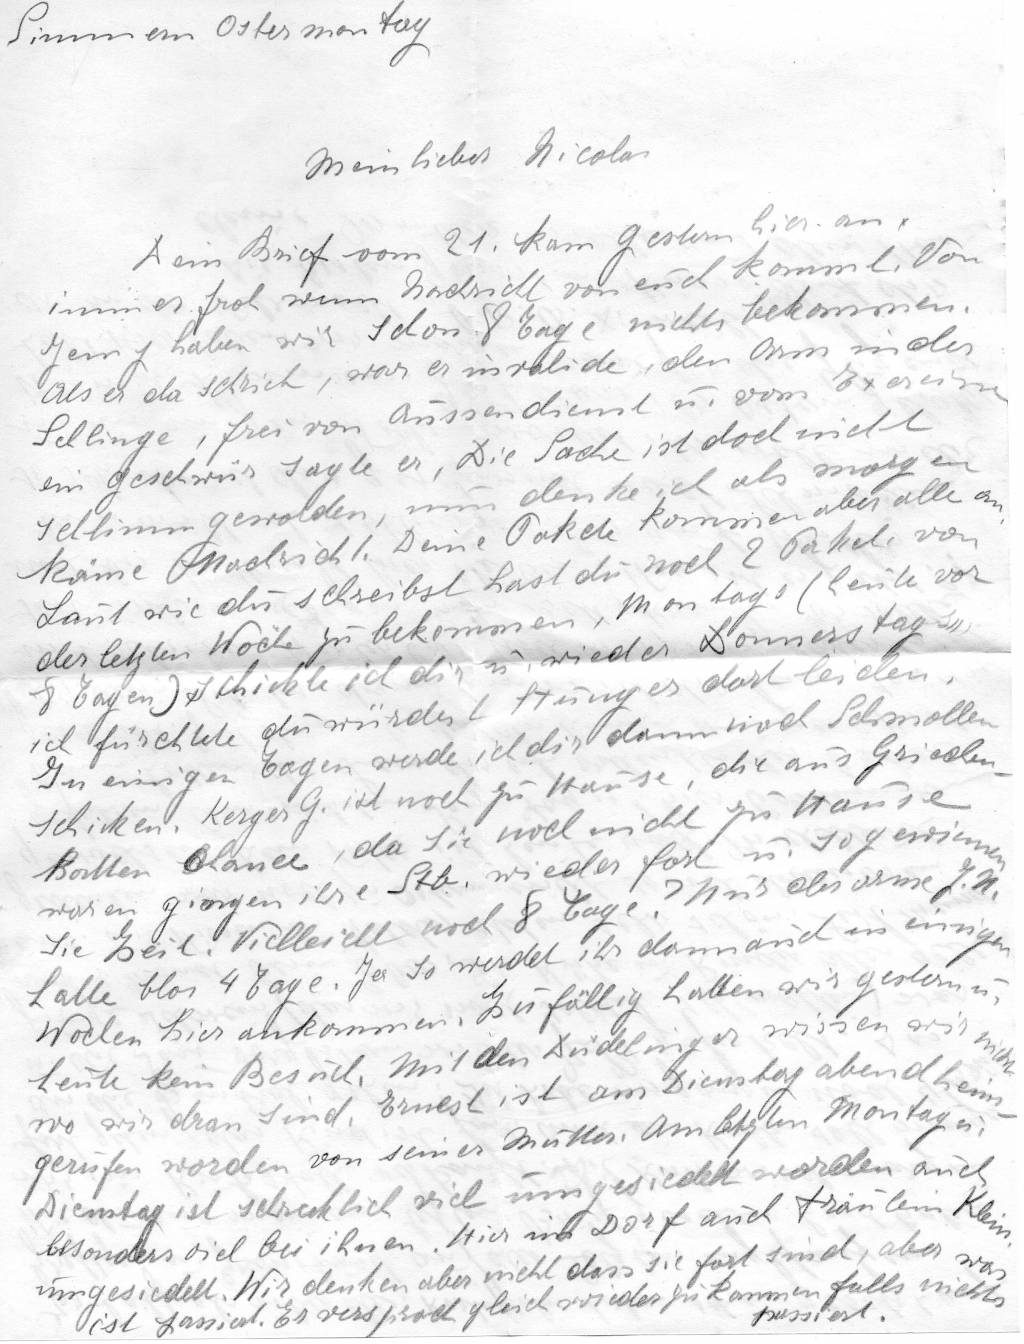 Simmern Ostermontag
Mein lieber Nicolas
Dein Brief vom 21. kam gestern hier an,
immer froh wenn Nachricht von euch kommt. Von
Jemy haben wir schon 8 Tage nichts bekommen.
Als er da schrieb, war er invalide, den Arm in der
Schlinge, frei von Aussendienst u. vom Exerzieren
ein Geschwür sagte er, Die Sache ist doch nicht
schlimm geworden, nun denke ich als morgen
käme Nachricht. Deine Pakete kommen aber alle an,
Laut wie du schreibst hast du noch 2 Pakete von
der letzten Woche zu bekommen, Montags (heute vor
8 Tagen) schickte ich dir u. wieder Donnerstags,
ich fürchtete du würdest Hunger dort leiden.
In einigen Tagen werde ich dir dann noch Schmollen
schicken. Kerger G. ist noch zu Hause, die aus Griechen-
hatten Chance, da sie noch nicht zu Hause
waren gingen ihre Stb. wieder fort u. so gewinnen
sie Zeit. Vielleicht noch 8 Tage. Nur der arme J.N.
hatte blos 4 Tage. Ja so werdet ihr dann auch in einigen
Wochen hier ankommen. Zufällig hatten wir gestern u.
heute kein Besuch. Mit den Düdelinger wissen wir nicht
wo wir dran sind. Ernest ist am Dienstag abend heim-
gerufen worden von seiner Mutter. Am letzten Montag u.
Dienstag ist schrecklich viel umgesiedelt worden auch
besonders viel bei ihnen. Hier im Dorf auch Fräulein Klein
umgesiedelt. Wir denken aber nicht dass sie fort sind, aber was
ist passiert. Er versprach gleich wieder zu kommen falls nichts
passiert.